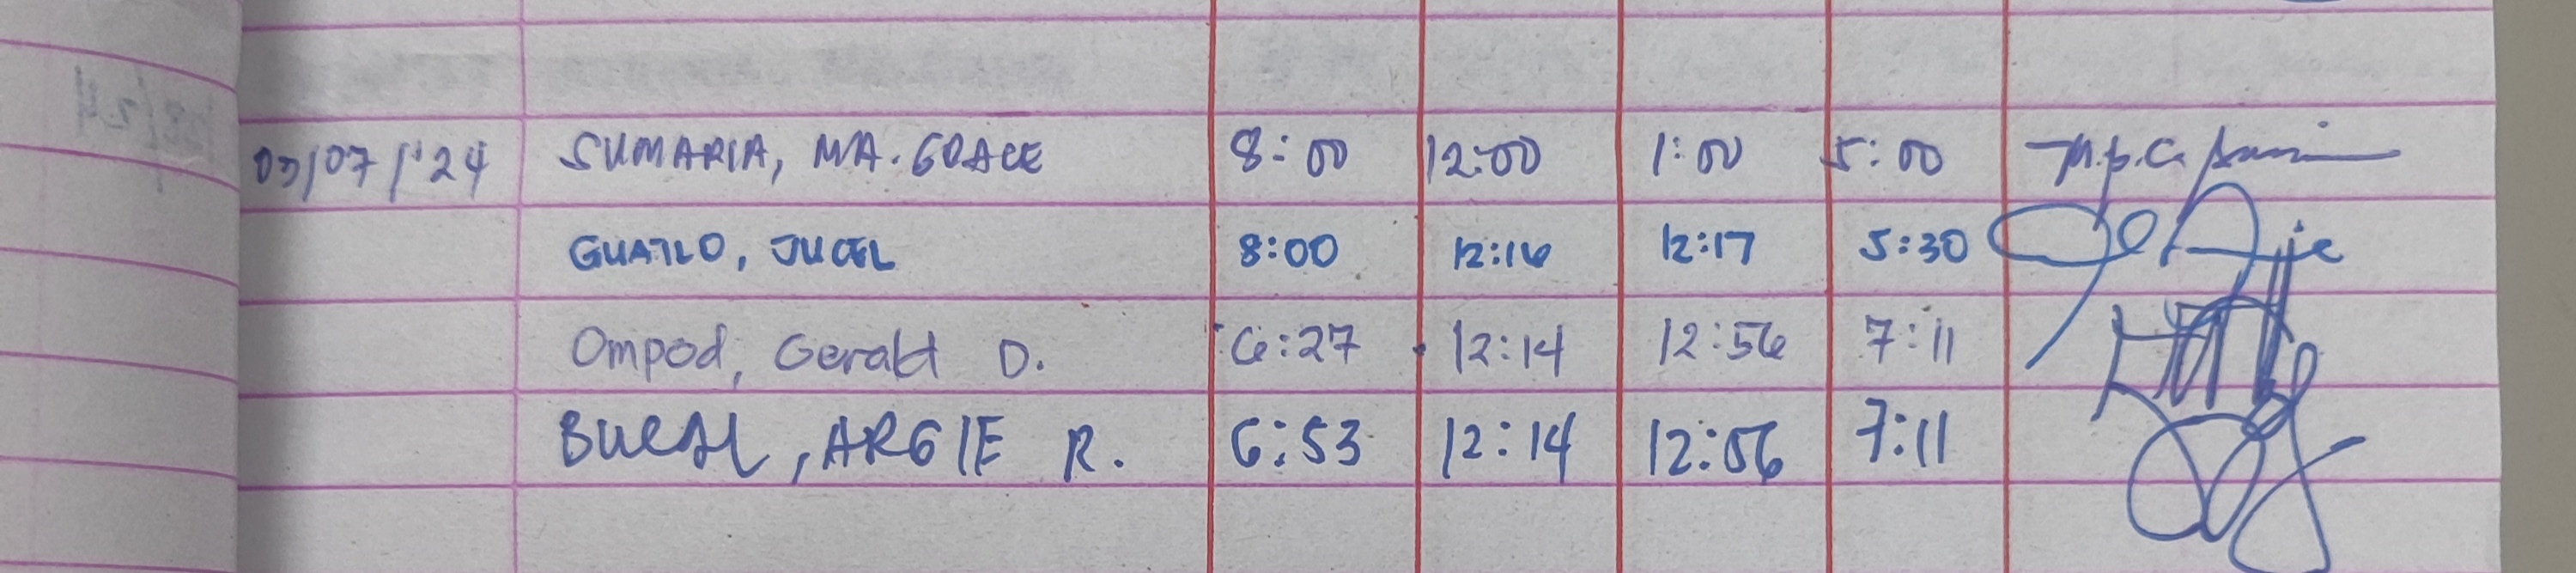 03/07/'24 SUMARIA, MA. GRACE 8:00 12:00 1:00 5:00
GUATLO, JUCEL 8:00 12:16 12:17 5:30
Ompod, Gerald D. 6:27 12:14 12:56 7:11
BUCAL, ARGIE R. 6:53 12:14 12:56 7:11